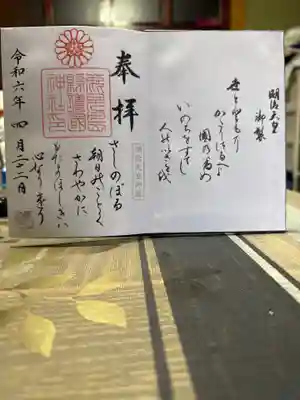 明治天皇
御製
世とともに
かたりつたへよ
國乃為
いのちをすてし
人のいさをを
奉拝
さしのぼる
朝日のごとく
さわやかに
もたまほしきは
心なりけり
令和六年 四月二十二日